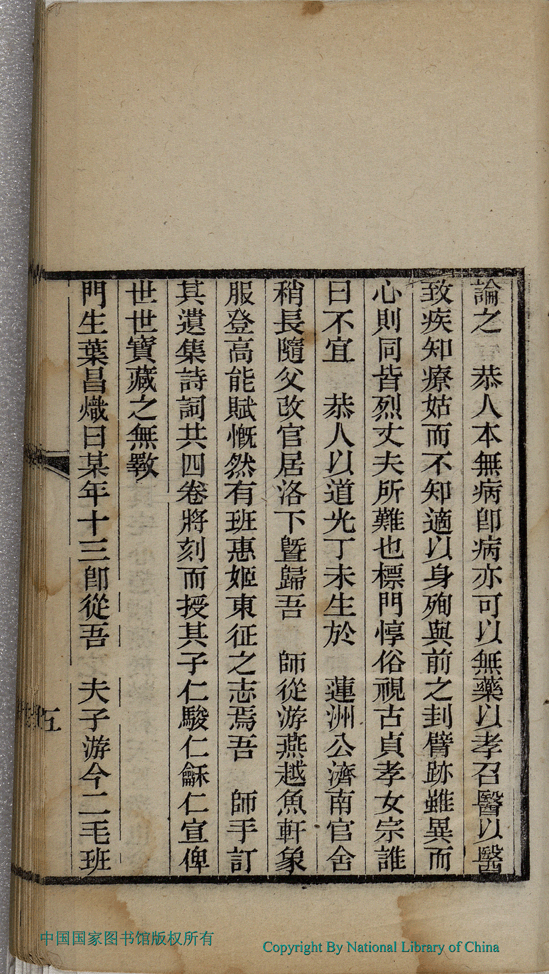 論之　恭人本無病卽病亦可以無藥以孝召醫以醫
致疾知療姑而不知適以身殉與前之刲臂跡雖異而
心則同皆烈丈夫所難也標門惇俗視古貞孝女宗誰
曰不宜　恭人以道光丁未生於　蓮洲公濟南官舍
稍長隨父改官居洛下曁歸吾　師從游燕越魚軒象
服登高能賦慨然有班惠姬東征之志焉吾　師手訂
其遺集詩詞共四卷將刻而授其子仁駿仁龢仁宣俾
世世寶藏之無斁
門生葉昌熾曰某年十三卽從吾　夫子游今二毛班
五
中国国家图书馆版权所有
Copyright By National Library of China